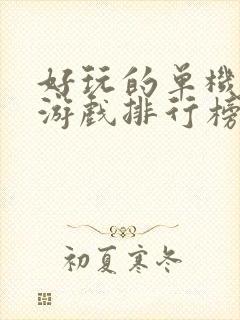 好玩的单機
游戲排行榜
初夏寒冬